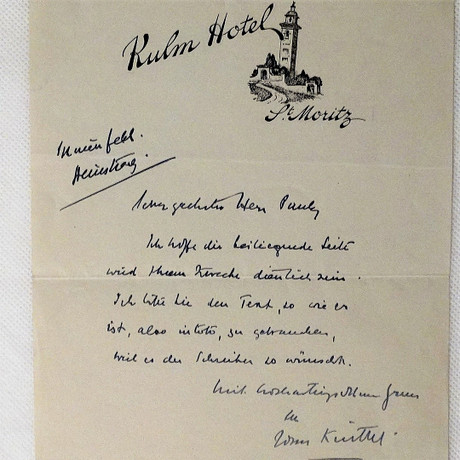 Kulm Hotel
St. Moritz
Sehr geehrter Herr Pauly
Ich hoffe die beiliegende Seite
wird Ihrem Zwecke dienlich sein.
Ich bitte Sie den Text, so wie er
ist, also in toto, zu gebrauchen,
weil es der Schreiber so wünscht.
Mit